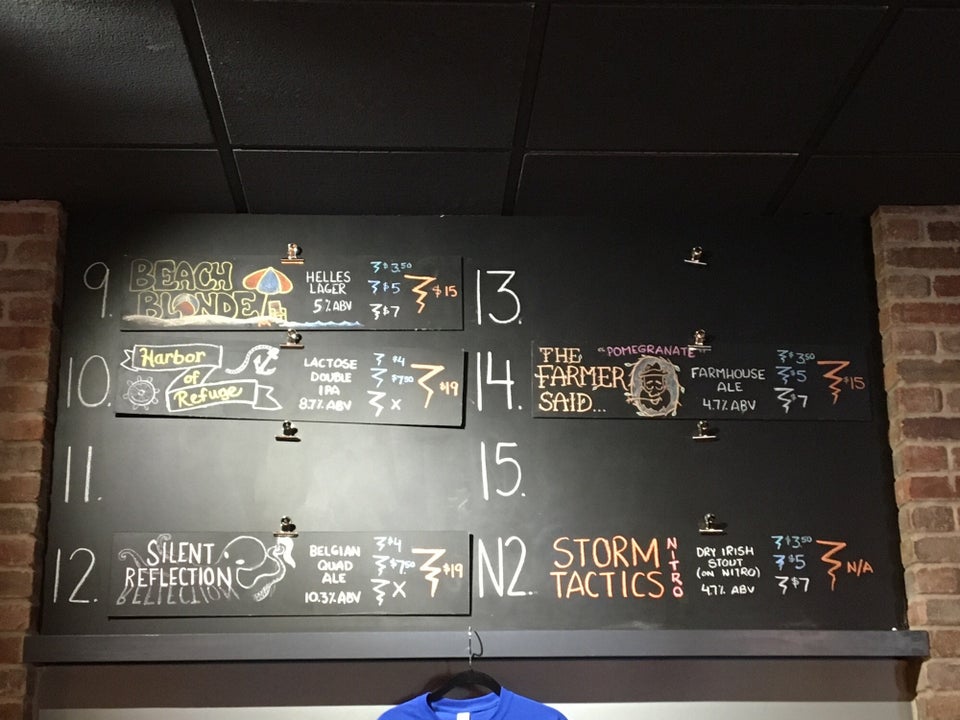 9.
BEACH
BLONDE
HELLES
LAGER
5% ABV
$3.50
$5
$7
$15
10.
Harbor
of
Refuge
LACTOSE
DOUBLE
IPA
8.7% ABV
$4
$7.50
X
$19
11.
12.
SILENT
REFLECTION
BELGIAN
QUAD
ALE
10.3% ABV
$4
$7.50
X
$19
13.
14.
THE "POMEGRANATE"
FARMER
SAID...
FARMHOUSE
ALE
4.7% ABV
$3.50
$5
$7
$15
15.
N2.
STORM
TACTICS
NITRO
DRY IRISH
STOUT
(ON NITRO)
4.7% ABV
$3.50
$5
$7
N/A